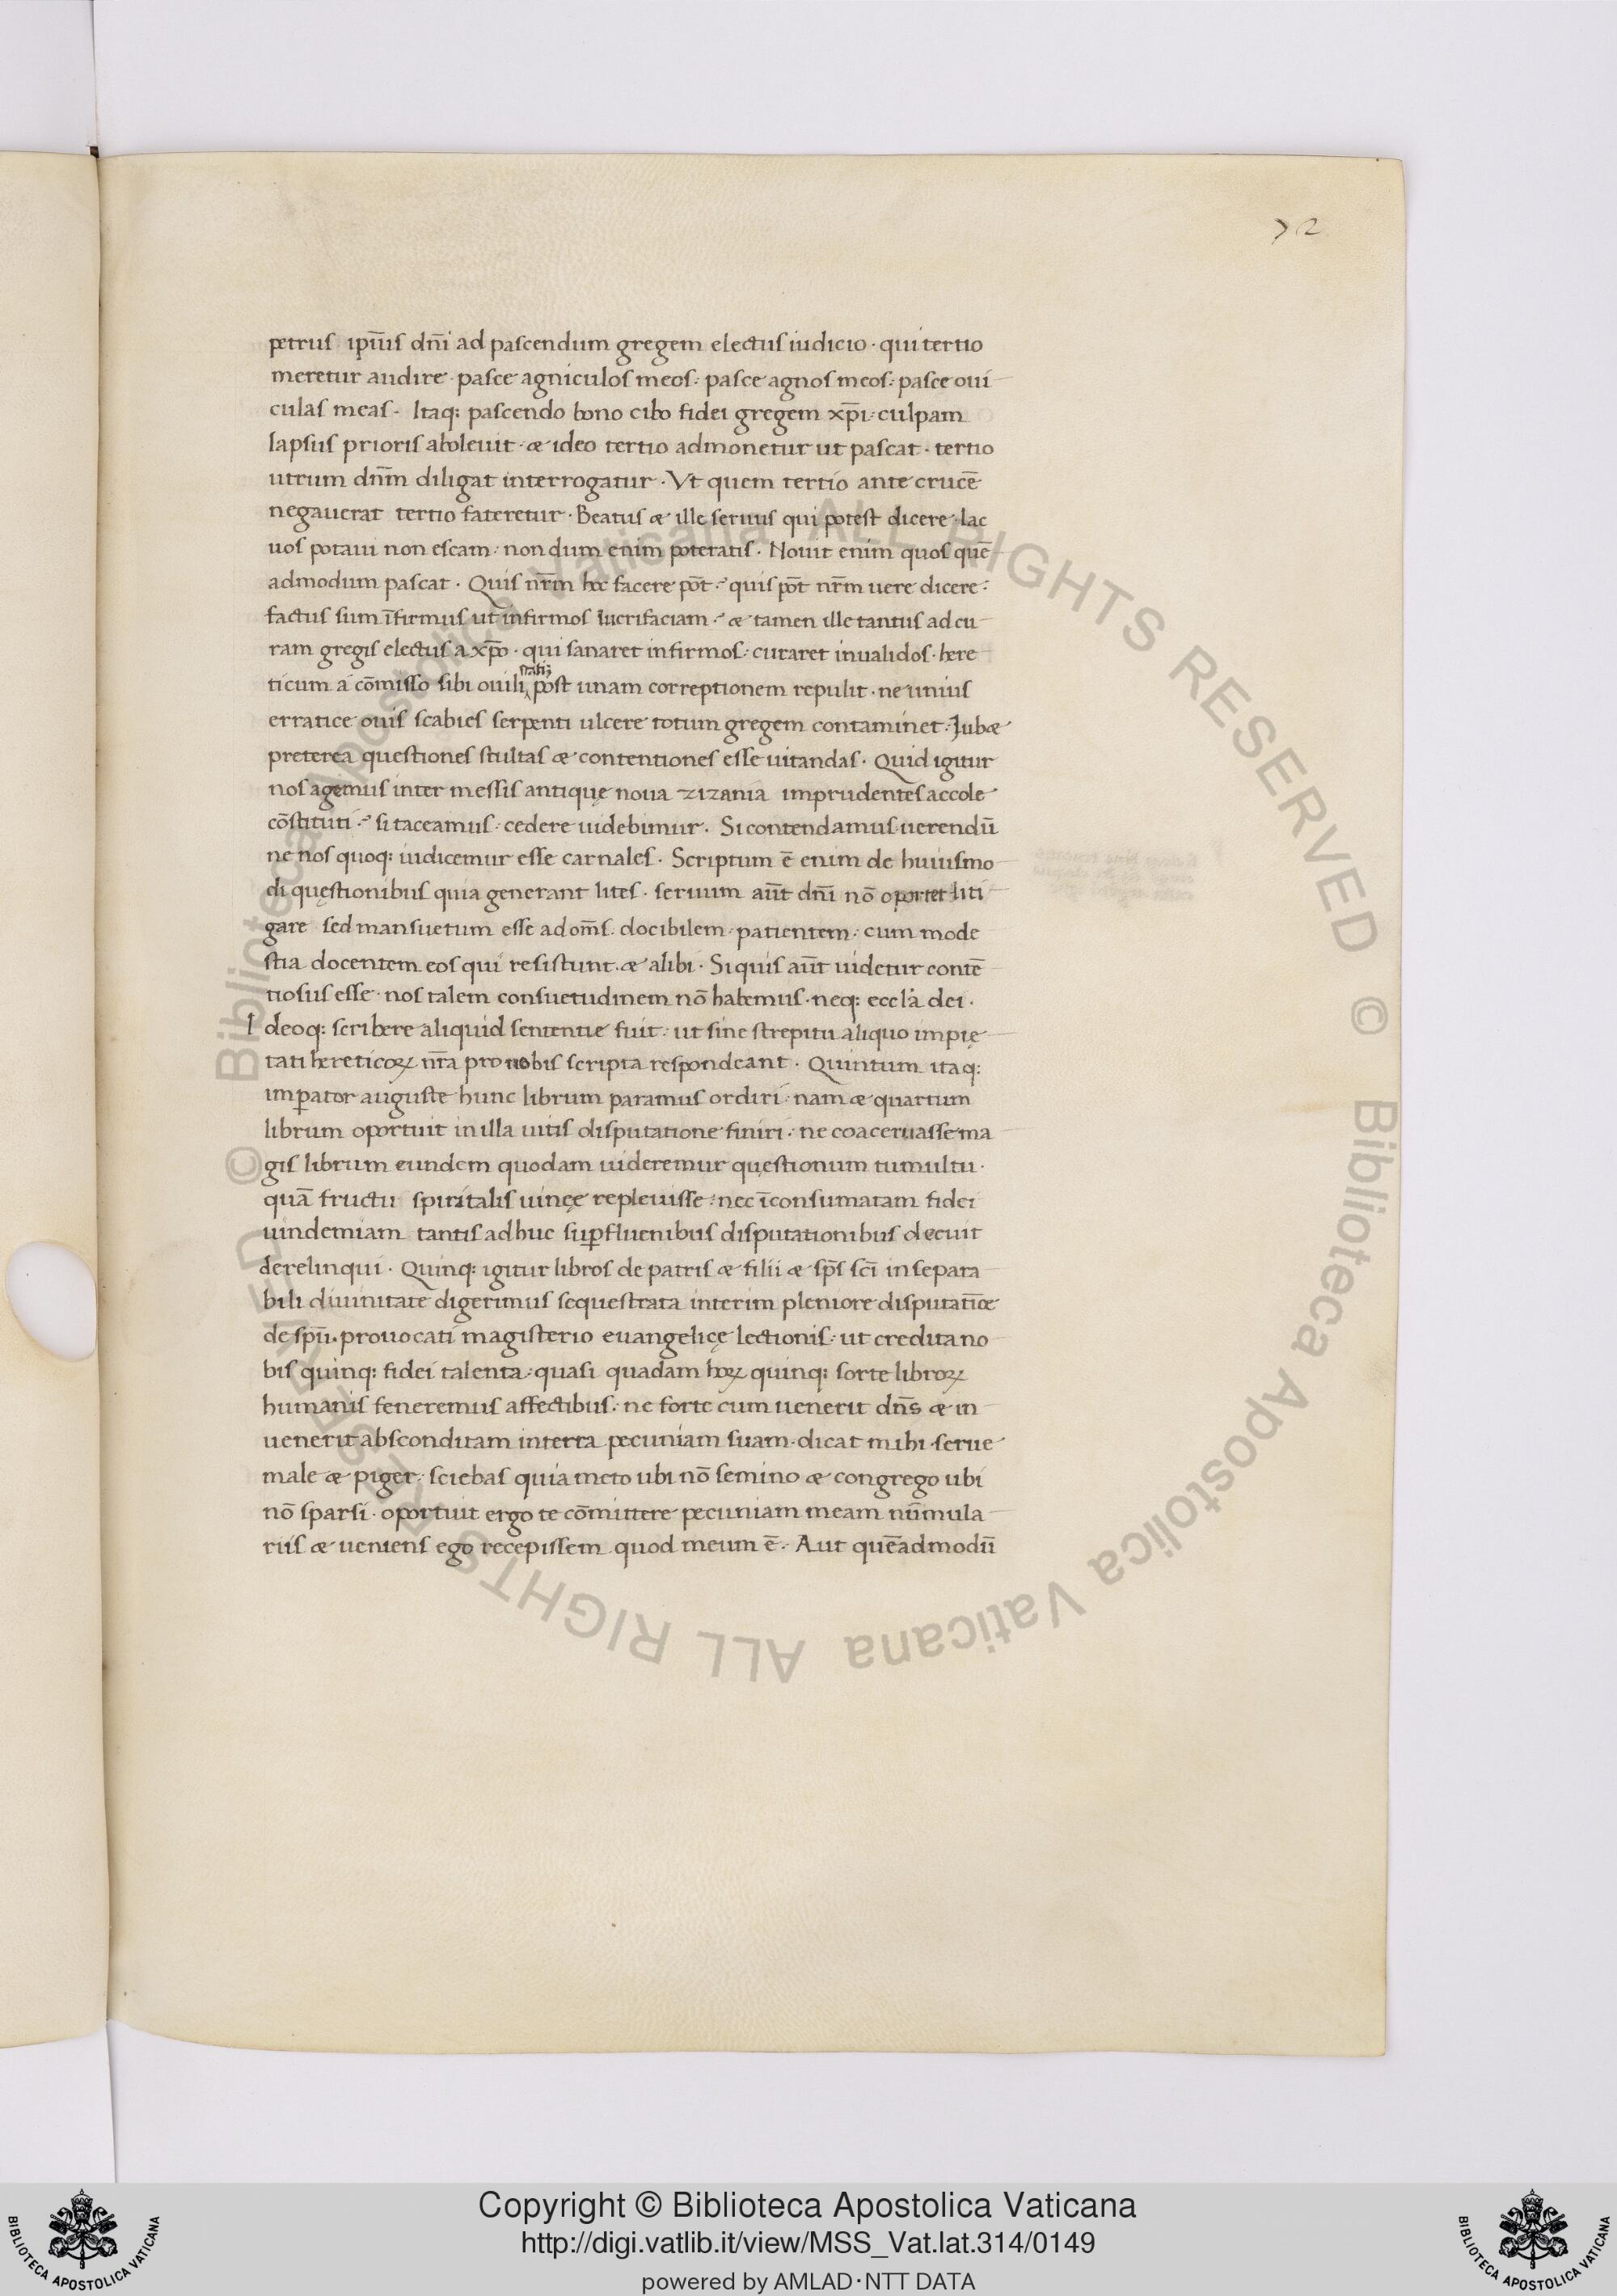 72
petrus ip̄ius dn̄i ad pascendum gregem electus iudicio · qui tertio
meretur audire · pasce agniculos meos : pasce agnos meos : pasce oui
culas meas · Itaq: pascendo bono cibo fidei gregem xp̄i : culpam
lapsus prioris aboleuit · æ ideo tertio admonetur ut pascat · tertio
utrum dn̄m diligat interrogatur · Vt quem tertio ante crucē
negauerat tertio fateretur · Beatus æ ille seruus qui potest dicere · lac
uos potaui non escam : non dum enim poteratis · Nouit enim quos quē
admodum pascat · Quis nr̄m hoc facere pōt : quis pōt nr̄m uere dicere :
factus sum īfirmus ut infirmos lucrifaciam : æ tamen ille tantus ad cu
ram gregis electus a xp̄o · qui sanaret infirmos : curaret inualidos · here
ticum a cōmisso sibi ouili statī post unam correptionem repulit · ne unius
erratice ouis scabies serpenti ulcere totum gregem contaminet : Jubæ
preterea questiones stultas æ contentiones esse uitandas · Quid igitur
nos agemus inter messis antiquę noua zizania imprudentes accole
cōstituti : si taceamus : cedere uidebimur · Si contendamus uerendū
ne nos quoq: iudicemur esse carnales · Scriptum ē enim de huiusmo
di quęstionibus quia generant lites · seruum aūt dn̄i nō oportet liti
gare sed mansuetum esse ad om̄s · docibilem · patientem : cum mode
stia docentem eos qui resistunt · æ alibi · Si quis aūt uidetur contē
tiosus esse · nos talem consuetudinem nō habemus · neq: eccl̄a dei ·
I deoq: scribere aliquid sententie fuit : ut sine strepitu aliquo impię
tati hereticoꝝ nr̄a pro nobis scripta respondeant · Quintum itaq:
imꝑator auguste hunc librum paramus ordiri : nam æ quartum
librum oportuit in illa uitis disputatione finiri : ne coaceruasse ma
gis librum eundem quodam uideremur quęstionum tumultu ·
quā fructu spiritalis uineę repleuisse : nec īconsumatam fidei
uindemiam tantis adhuc suꝑfluenibus disputationibus decuit
derelinqui · Quinq: igitur libros de patris æ filii æ sp̄s sc̄i insepara
bili diuinitate digerimus sequestrata interim pleniore disputatiōe
de spū · prouocati magisterio euangelicę lectionis : ut credita no
bis quinq: fidei talenta : quasi quadam hoꝝ quinq: sorte libroꝝ
humanis feneremus affectibus : ne forte cum uenerit dn̄s æ in
uenerit absconditam in terra pecuniam suam · dicat mihi · serue
male æ piger : sciebas quia meto ubi nō semino æ congrego ubi
nō sparsi · oportuit ergo te cōmittere pecuniam meam nūmula
riis æ ueniens ego recepissem quod meum ē : Aut quēadmodū
Copyright © Biblioteca Apostolica Vaticana
http://digi.vatlib.it/view/MSS_Vat.lat.314/0149
powered by AMLAD·NTT DATA
BIBLIOTECA APOSTOLICA VATICANA
BIBLIOTECA APOSTOLICA VATICANA
© Biblioteca Apostolica Vaticana ALL RIGHTS RESERVED
© Biblioteca Apostolica Vaticana ALL RIGHTS RESERVED